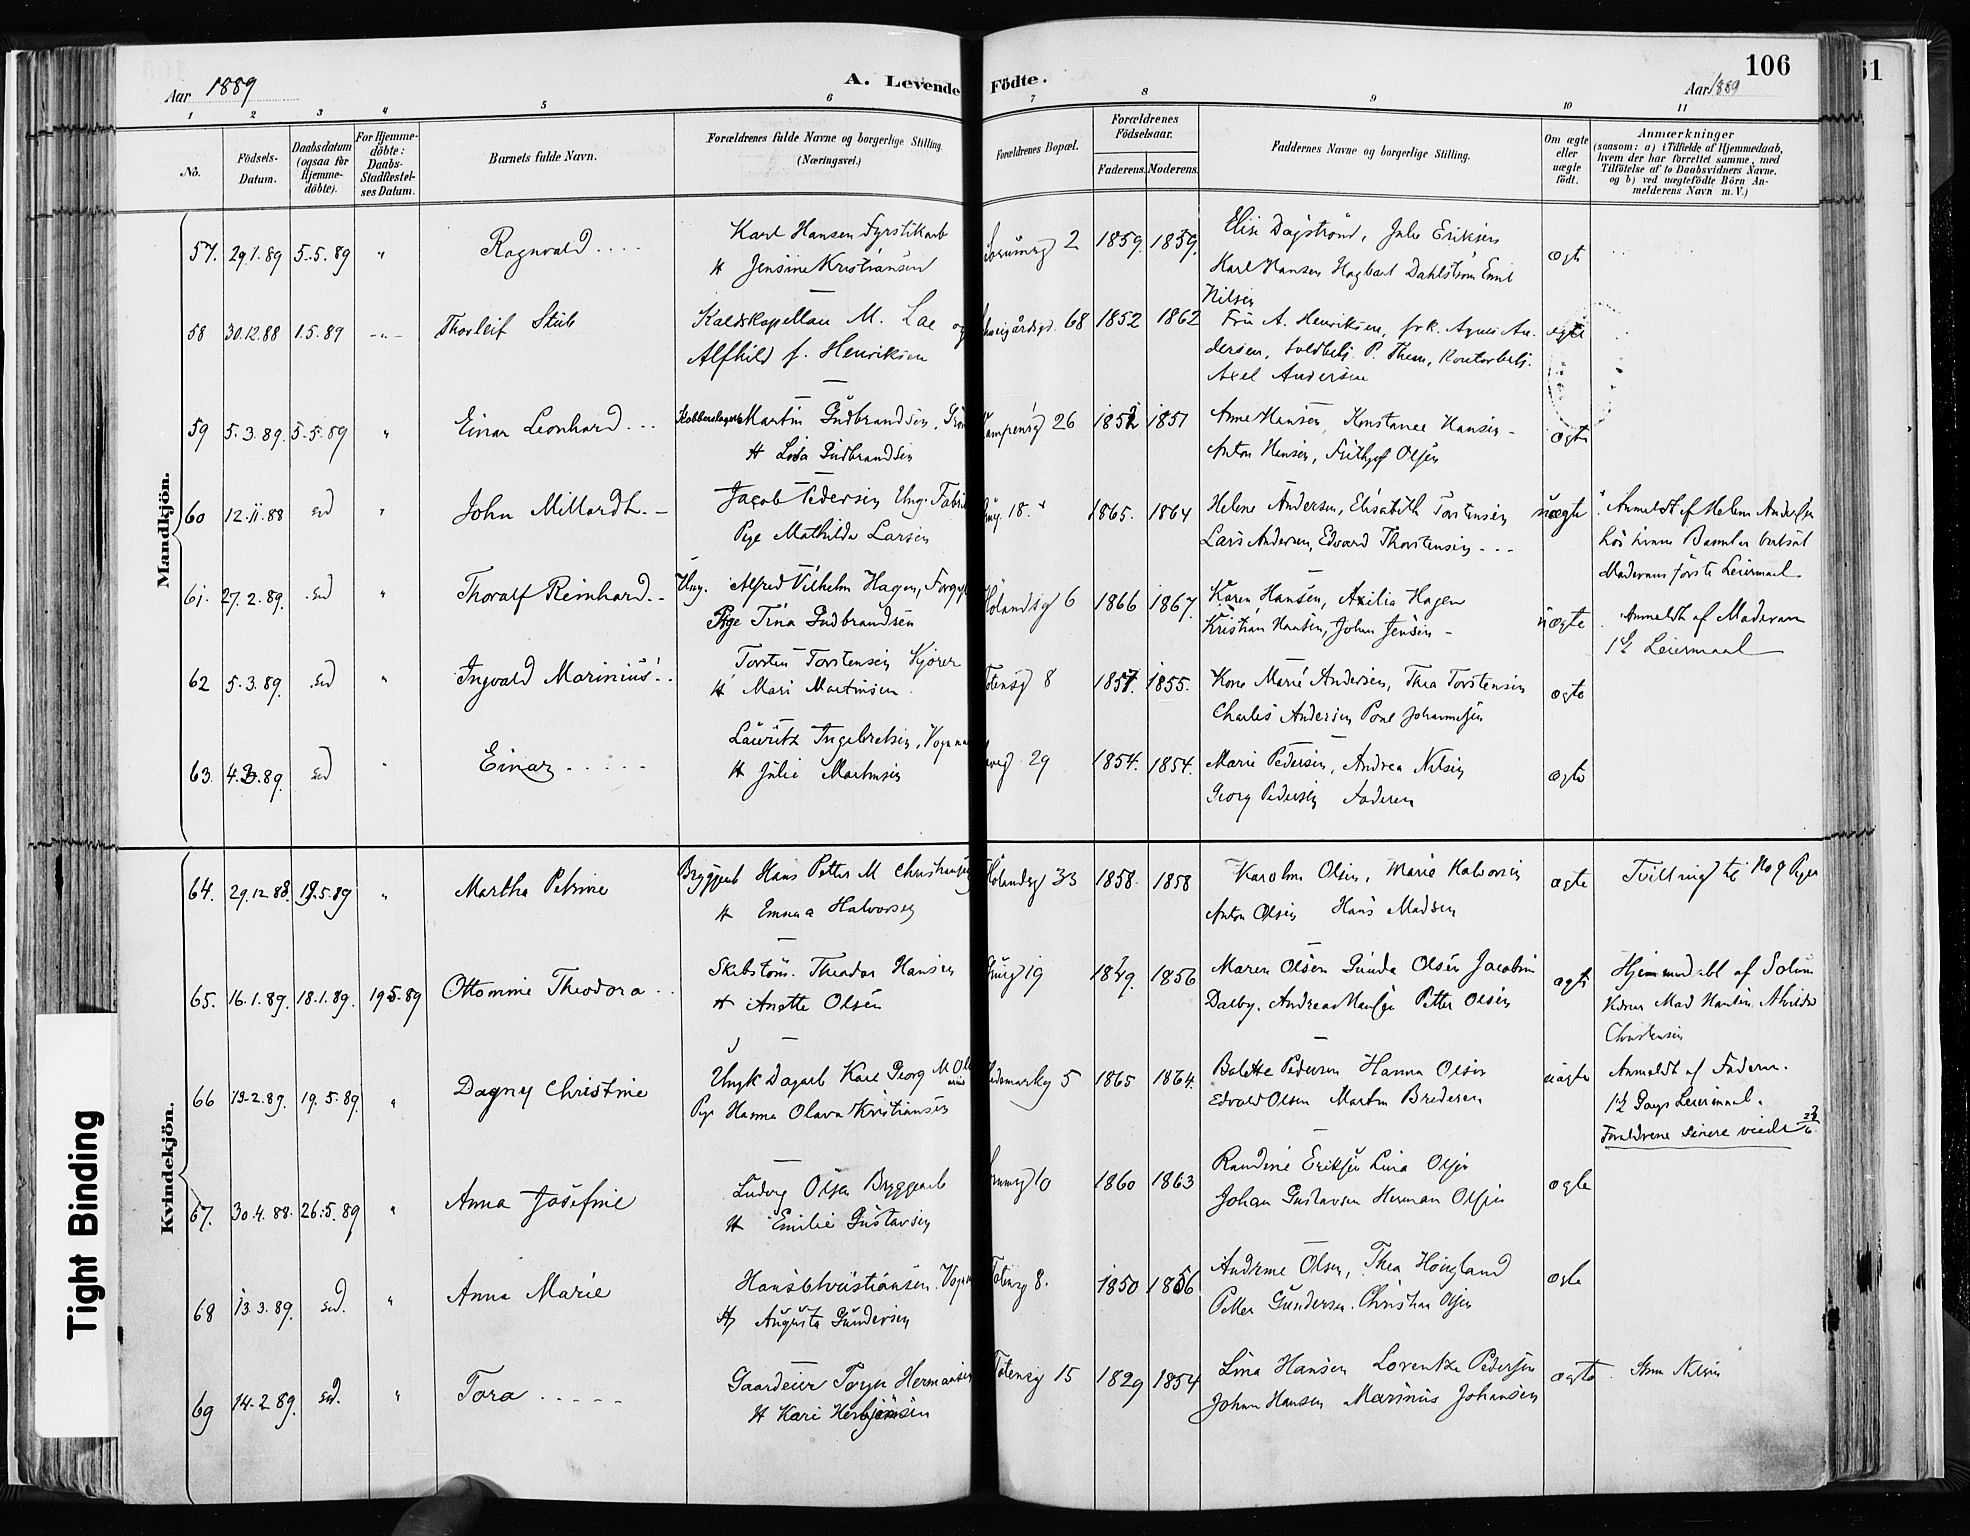 106
61
Aar 1889
A. Levende Födte.
Aar 1889
1 2 3 4 5 6 7 8 9 10 11
No.
Födsels-Datum.
Daabsdatum (ogsaa for Hjemme-döbte).
For Hjemme-döbte: Daabs-Stadfæstel-ses Datum.
Barnets fulde Navn.
Forældrenes fulde Navne og borgerlige Stilling.
(Næringsvei.)
Forældrenes Bopæl.
Forældrenes Födselsaar.
Faderens. Moderens.
Faddernes Navne og borgerlige Stilling.
Om ægte eller uægte födt.
Anmærkninger
(saasom: a) i Tilfælde af Hjemmedaab, hvem der har forrettet samme, med Tilföielse af to Daabsvidners Navne, og b) ved uægtefödte Börn An-melderens Navn m. V.)
Mandkjön.
57. 29.1.89 5.5.89 " Ragnvald Karl Hansen Fyrstikarb 2 1859. 1859. Elise Dagström, Julie Eriksen ægte
H Jensine Kristiansen Karl Hansen Hagbart Dahlström Emil
Nilsen
58 30.12.88 1.5.89 -"- Thorleif Stub Kaldskapellan M. Lae og 68 1852 1862 Fru A. Henriksen, frk. Agnes An- ægte
Alfhild f. Henriksen dersen, P. Kontorbetj.
Axel Andersen
59 5.3.89. 5.5.89 " Einar Leonhard Martin Gudbrandsen, Kampensg 26 1852 1851 Anne Hansen, Konstance Hansen - ægte
H Lisa Gudbrandsen Anton Hansen, Frithjof Olsen
60 12.11.88 sd " John Millardt. Jacob Pedersen Ung. 18. 1865. 1864 Helene Andersen, Elisabeth Torstensen uægte Anmeldt af Helene Andersen
Pige Mathilde Larsen Lars Andersen, Edvard Thorstensen hos hvem Barnet er bortsat
Moderens första Leiermaal
61. 27.2.89. sd " Thoralf Reinhard Ung. Alfred Vilhelm Hagen, Hölandsg 6 1866 1867. Karen Hansen, Axilia Hagen uægte Anmeldt af Moderen
Pige Tina Gudbrandsen Kristian Hansen, Johan Jensen - 1ste Leiermaal
62 5.3.89. sd " Ingvald Marinius Torsten Torstensen Kjörer Totensg 8 1857. 1855. Kone Marie Andersen, Thea Torstensen ægte
H Mari Martinsen. Charles Andersen Poul Johannesen
63. 4.3.89. sd " Einar Lauritz Ingebretsen, 29 1854. 1854. Marie Pedersen, Andrea Nilsen ægte
H Julie Martinsen Georg Pedersen Faderen
Kvindekjön.
64. 29.12.88. 19.5.89 " Martha Petrine Bryggearb Hans Petter M Christiansen Hölandsg 33 1858. 1858 Karoline Olsen, Marie Halvorsen ægte Tvilling til No 9 Piger
H Emma Halvorsen Anton Olsen Hans Madsen
65. 16.1.89. 18.1.89. 19.5.89 Ottomine Theodora Skibstöm. Theodor Hansen 19 1849. 1856 Maren Olsen Gunda Olsen Jacobine ægte Hjemmedöbt af
H Anette Olsen Dalby. Andreas Hansen Petter Olsen Mad Hansen
Christensen
66 13.2.89. 19.5.89. " Dagny Christine Ungk Dagarb Karl Georg M. Hedemarksg 5 1865 1864. Bolette Pedersen Hanna Olsen uægte Anmeldt af Faderen.
Pige Hanna Olava Kristiansen Edvald Olsen Martin Bredesen 1ste Gangs Leiermaal.
Forældrene senere viede
67. 30.4.88. 26.5.89 " Anna Josefine Ludvig Olsen Bryggearb 10 1860 1863 Randine Eriksen Lina Olsen ægte
H Emilie Gustavsen Johan Gustavsen Herman Olsen
68 13.3.89. sd. " Anna Marie Hans Christiansen. Totensg 8. 1850 1856 Andrine Olsen, Thea Hougland ægte
H Augusta Gundersen Petter Gundersen. Christian Olsen
69 14.2.89. sd. " Tora Gaardeier Torger Hermansen Totensg 15 1829 1854 Lina Hansen Lorentze Pedersen ægte
H Kari Herbjörnsen Johan Hansen Marinus Johansen
Tight Binding